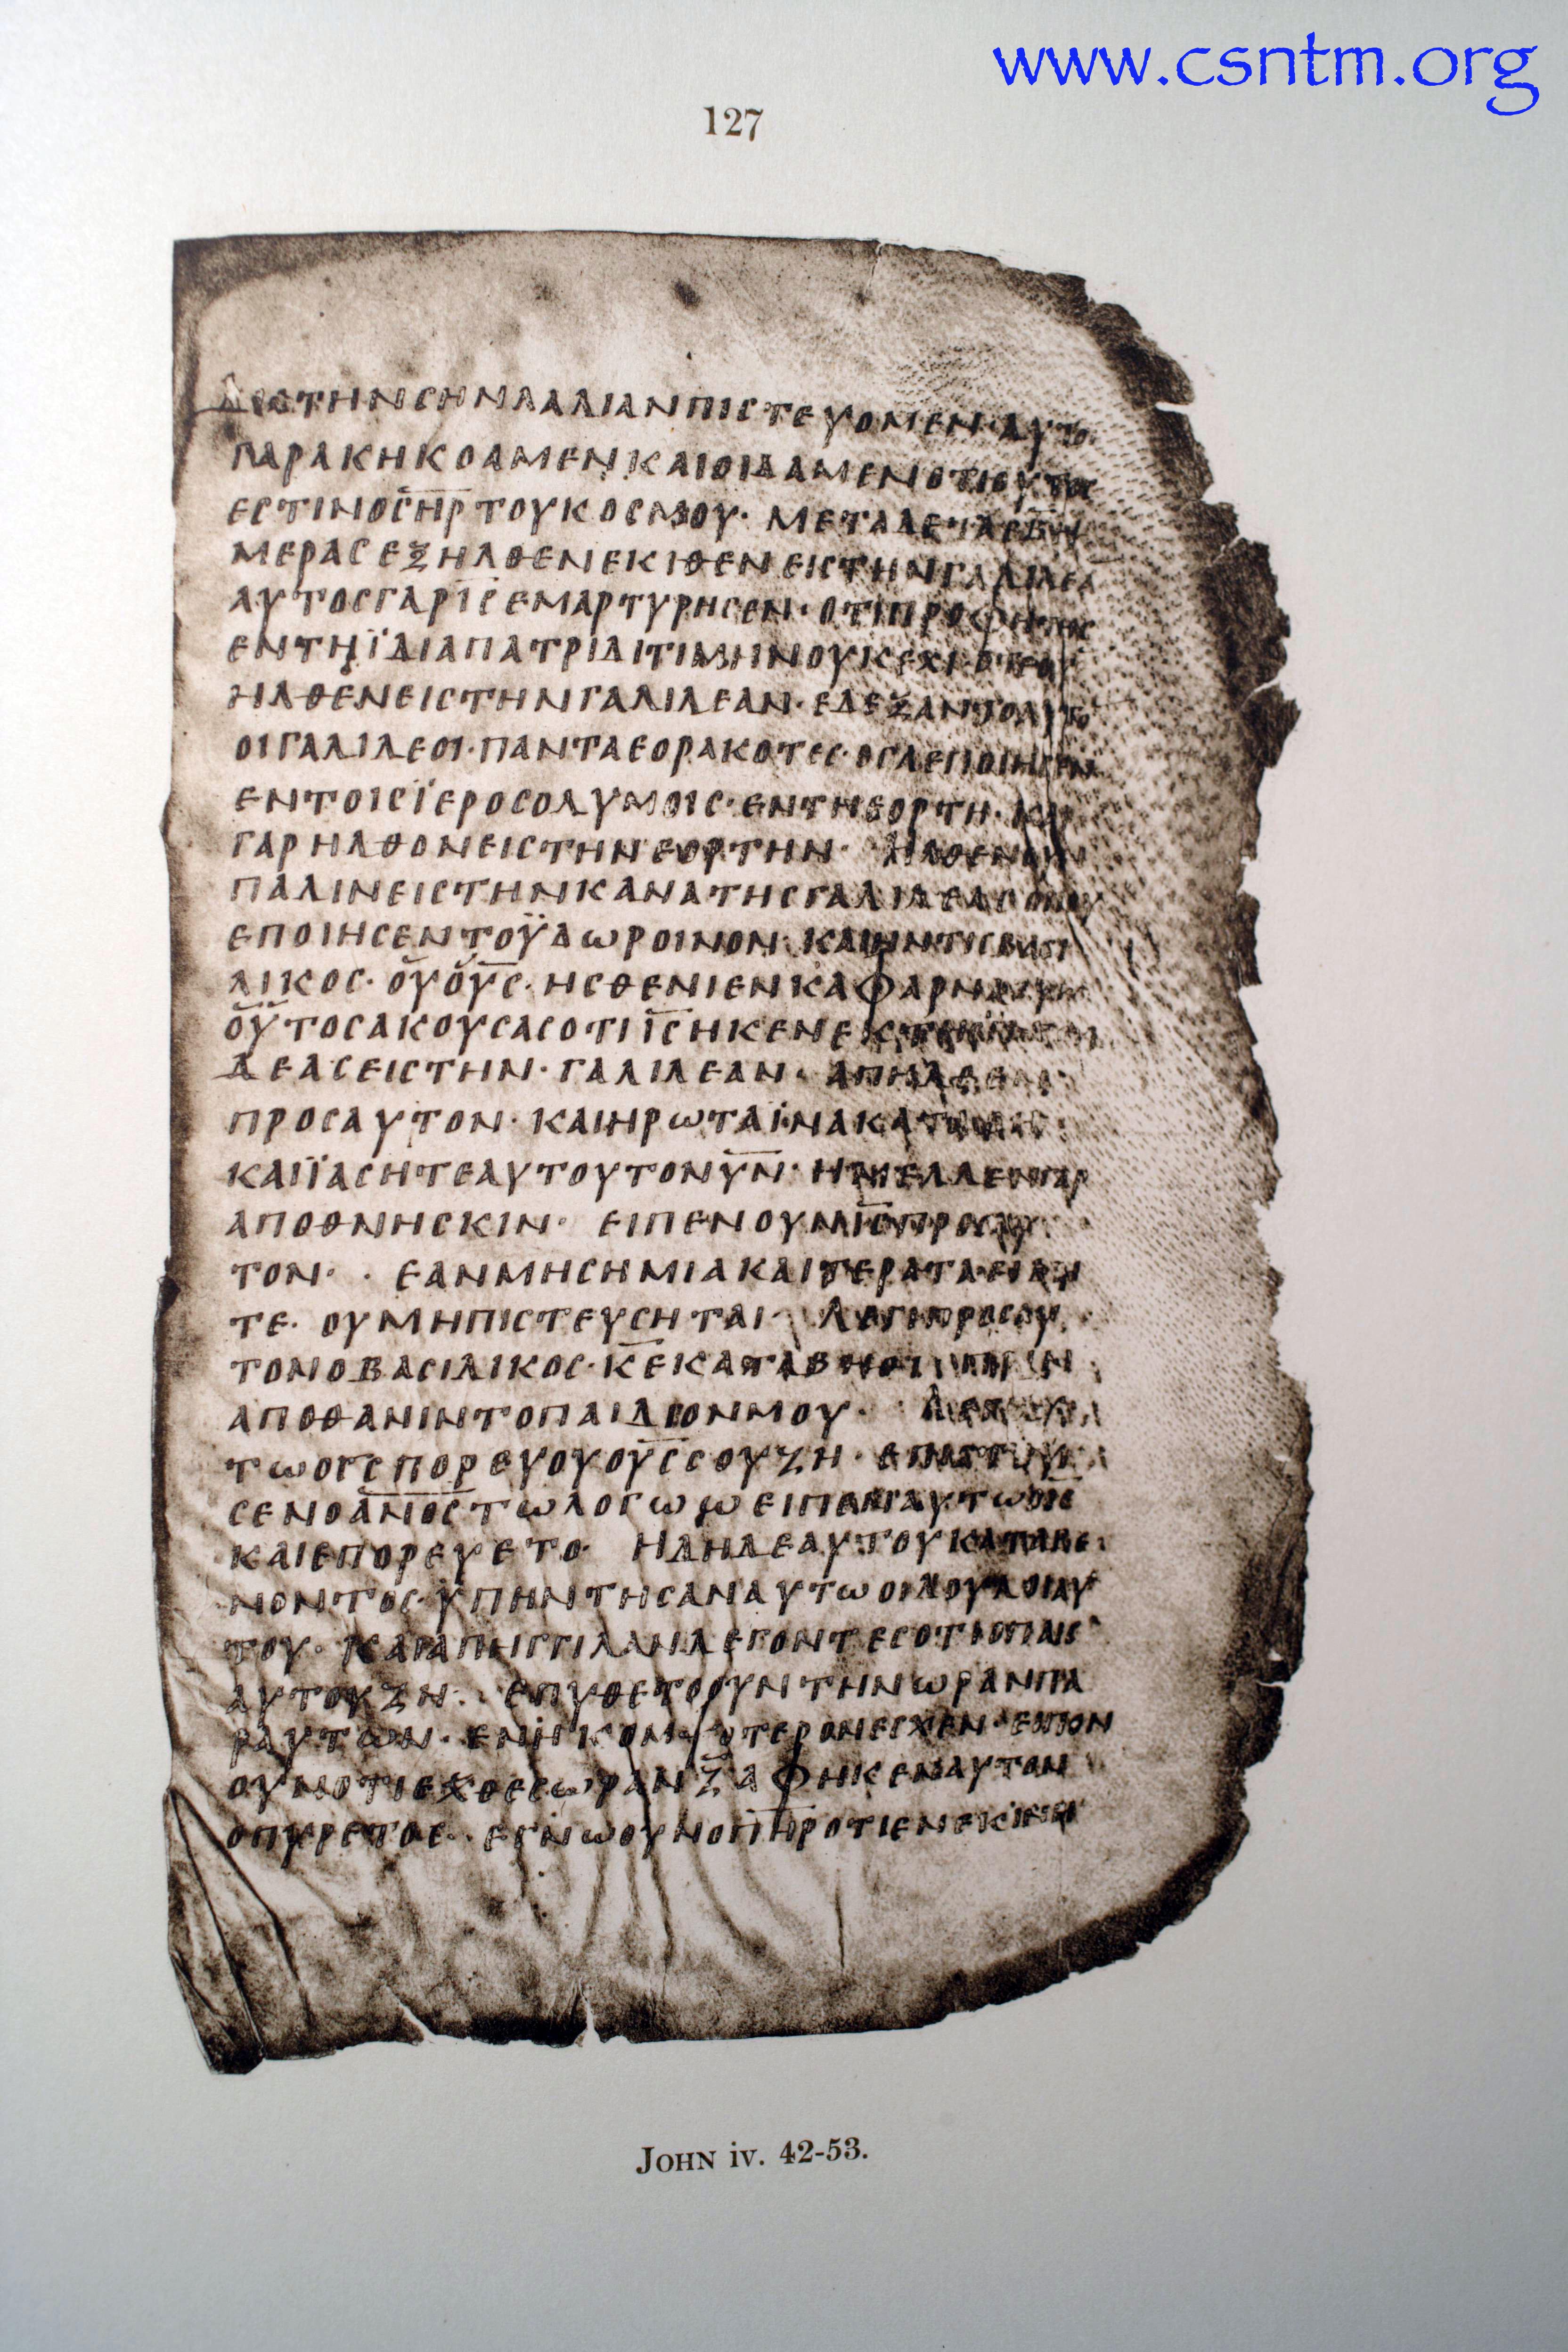 www.csntm.org
127
ΔΙΑΤΗΝϹΗΝΛΑΛΙΑΝΠΙϹΤΕΥΟΜΕΝ·ΑΥΤΟ
ΠΑΡΑΚΗΚΟΑΜΕΝΚΑΙΟΙΔΑΜΕΝΟΤΙΟΥΤΟϹ
ΕϹΤΙΝΟϹ̅Η̅Ρ̅ΤΟΥΚΟϹΜΟΥ· ΜΕΤΑΔΕ
ΜΕΡΑϹΕΞΗΛΘΕΝΕΚΙΘΕΝΕΙϹΤΗΝΓΑΛΙΛΕΑ
ΑΥΤΟϹΓΑΡΙ̅Ϲ̅ΕΜΑΡΤΥΡΗϹΕΝ·ΟΤΙΠΡΟΦΗΤΗϹ
ΕΝΤΗΪΔΙΑΠΑΤΡΙΔΙΤΙΜΗΝΟΥΚΕΧΙ·ΟΤΕΟΥ
ΗΛΘΕΝΕΙϹΤΗΝΓΑΛΙΛΕΑΝ·ΕΔΕΞΑΝΤΟΑΥΤΟ
ΟΙΓΑΛΙΛΕΟΙ·ΠΑΝΤΑΕΟΡΑΚΟΤΕϹ·ΟϹΑΕΠΟΙΗϹΕΝ
ΕΝΤΟΙϹΪΕΡΟϹΟΛΥΜΟΙϹ·ΕΝΤΗΕΟΡΤΗ·ΚΑΙ
ΓΑΡΗΛΘΟΝΕΙϹΤΗΝΕΟΡΤΗΝ· ΗΛΘΕΝΟΥΝ
ΠΑΛΙΝΕΙϹΤΗΝΚΑΝΑΤΗϹΓΑΛΙΛΕΑϹΟΠΟΥ
ΕΠΟΙΗϹΕΝΤΟΫΔΩΡΟΙΝΟΝ·ΚΑΙΗΝΤΙϹΒΑϹΙ
ΛΙΚΟϹ·ΟΥΟΥ̅Ϲ̅·ΗϹΘΕΝΙΕΝΚΑΦΑΡΝΑΟΥΜ
ΟΥΤΟϹΑΚΟΥϹΑϹΟΤΙΙ̅Ϲ̅ΗΚΕΝΕΚΤΗϹ
ΔΕΑϹΕΙϹΤΗΝ·ΓΑΛΙΛΕΑΝ· ΑΠΗΛΘΕΝ
ΠΡΟϹΑΥΤΟΝ·ΚΑΙΗΡΩΤΑΪΝΑΚΑΤΑΒΗ
ΚΑΙΪΑϹΗΤΕΑΥΤΟΥΤΟΝΥ̅Ν̅·ΗΜΕΛΛΕΝΓΑΡ
ΑΠΟΘΝΗϹΚΙΝ· ΕΙΠΕΝΟΥΝΙ̅Ϲ̅ΠΡΟϹΑΥ
ΤΟΝ·· ΕΑΝΜΗϹΗΜΙΑΚΑΙΤΕΡΑΤΑ·ΕΙΔΗ
ΤΕ· ΟΥΜΗΠΙϹΤΕΥϹΗΤΑΙ· ΛΕΓΙΠΡΟϹΑΥ
ΤΟΝΟΒΑϹΙΛΙΚΟϹ·Κ̅Ε̅ΚΑΤΑΒΗΘΙ ΠΡΙΝ
ΑΠΟΘΑΝΙΝΤΟΠΑΙΔΙΟΝΜΟΥ· ΛΕΓΕΙΑΥ
ΤΩΟΙ̅Ϲ̅ΠΟΡΕΥΟΥΟΥ̅Ϲ̅ϹΟΥΖΗ· ΕΠΙϹΤΕΥ
ϹΕΝΟΑ̅Ν̅Ο̅Ϲ̅ΤΩΛΟΓΩΩΕΙΠΕΝΑΥΤΩΟΙ̅Ϲ̅
ΚΑΙΕΠΟΡΕΥΕΤΟ· ΗΔΗΔΕΑΥΤΟΥΚΑΤΑΒΕ
ΝΟΝΤΟϹ·ΫΠΗΝΤΗϹΑΝΑΥΤΩΟΙΔΟΥΛΟΙΑΥ
ΤΟΥ· ΚΑΙΑΠΗΓΓΙΛΑΝΛΕΓΟΝΤΕϹΟΤΙΟΠΑΙϹ
ΑΥΤΟΥΖΗ·· ΕΠΥΘΕΤΟΟΥΝΤΗΝΩΡΑΝΠΑ
ΡΑΥΤΩΝ·ΕΝΗΚΟΜΨΟΤΕΡΟΝΕϹΧΕΝ·ΕΙΠΟΝ
ΟΥΝΟΤΙΕΧΘΕϹΩΡΑΝΖ̅ΑΦΗΚΕΝΑΥΤΟΝ
ΟΠΥΡΕΤΟϹ·· ΕΓΝΩΟΥΝΟΠ̅Η̅Ρ̅ΟΤΙΕΝΕΚΙΝΗ
JOHN iv. 42-53.